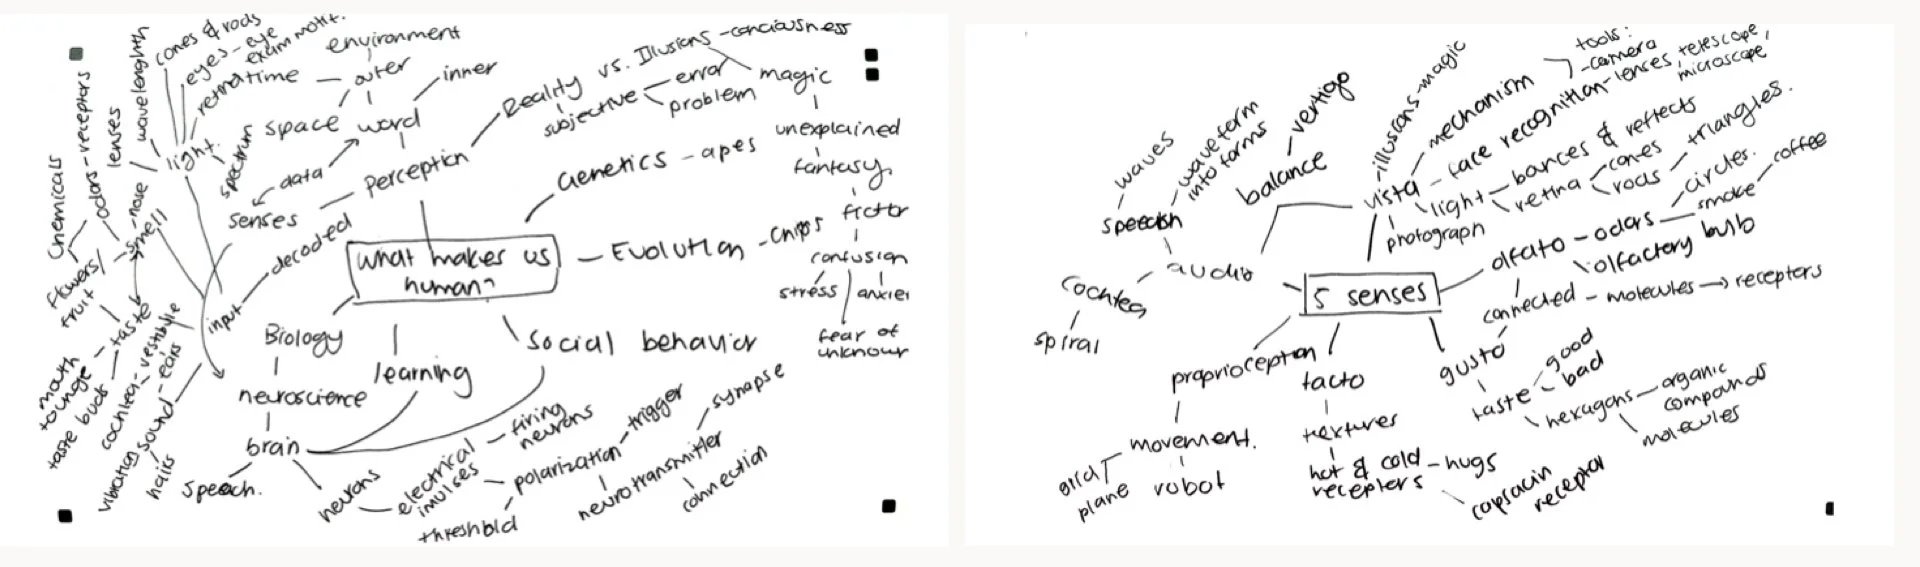 cones & rods
eyes - eye
exam motif.
retina
time
environment
outer
inner
space
word
wavelenghth
lenses
odors - receptors
chemicals
light.
spectrum
data
perception
senses
decoded
nose
smell
flowers/
fruit
taste
input
mouth
tounge
taste buds
cochlea - vestibule
sound - ears
vibration
hairs
Reality vs. Illusions - conciousness
subjective
error
problem
magic
unexplained
fantasy
confusion
stress
anxiei
fear of
unknown
Genetics - apes
Evolution - chips
what makes us
human?
Biology
neuroscience
brain
speech.
learning
social behavior
neurons
electrical
imulses
firing
neurons
polarization
trigger
threshold
neurotransmitter
synapse
connection
5 senses
vista
illusions - magic
mechanism
tools:
- camera
- lenses, telescope,
microscope
face recognition
light
bounces & reflects
retina
cones
rods
triangles.
circles.
photograph
balance
vertigo
audio
speech
waves
waveform
into forms
cochlea
spiral
olfato - odors
smoke
coffee
olfactory bulb
connected - molecules → receptors
gusto
taste
good
bad
hexagons
organic
compounds
molecules
tacto
textures
hot & cold
receptors
hugs
capsacin
receptor
proprioception
movement.
grid
plane
robot